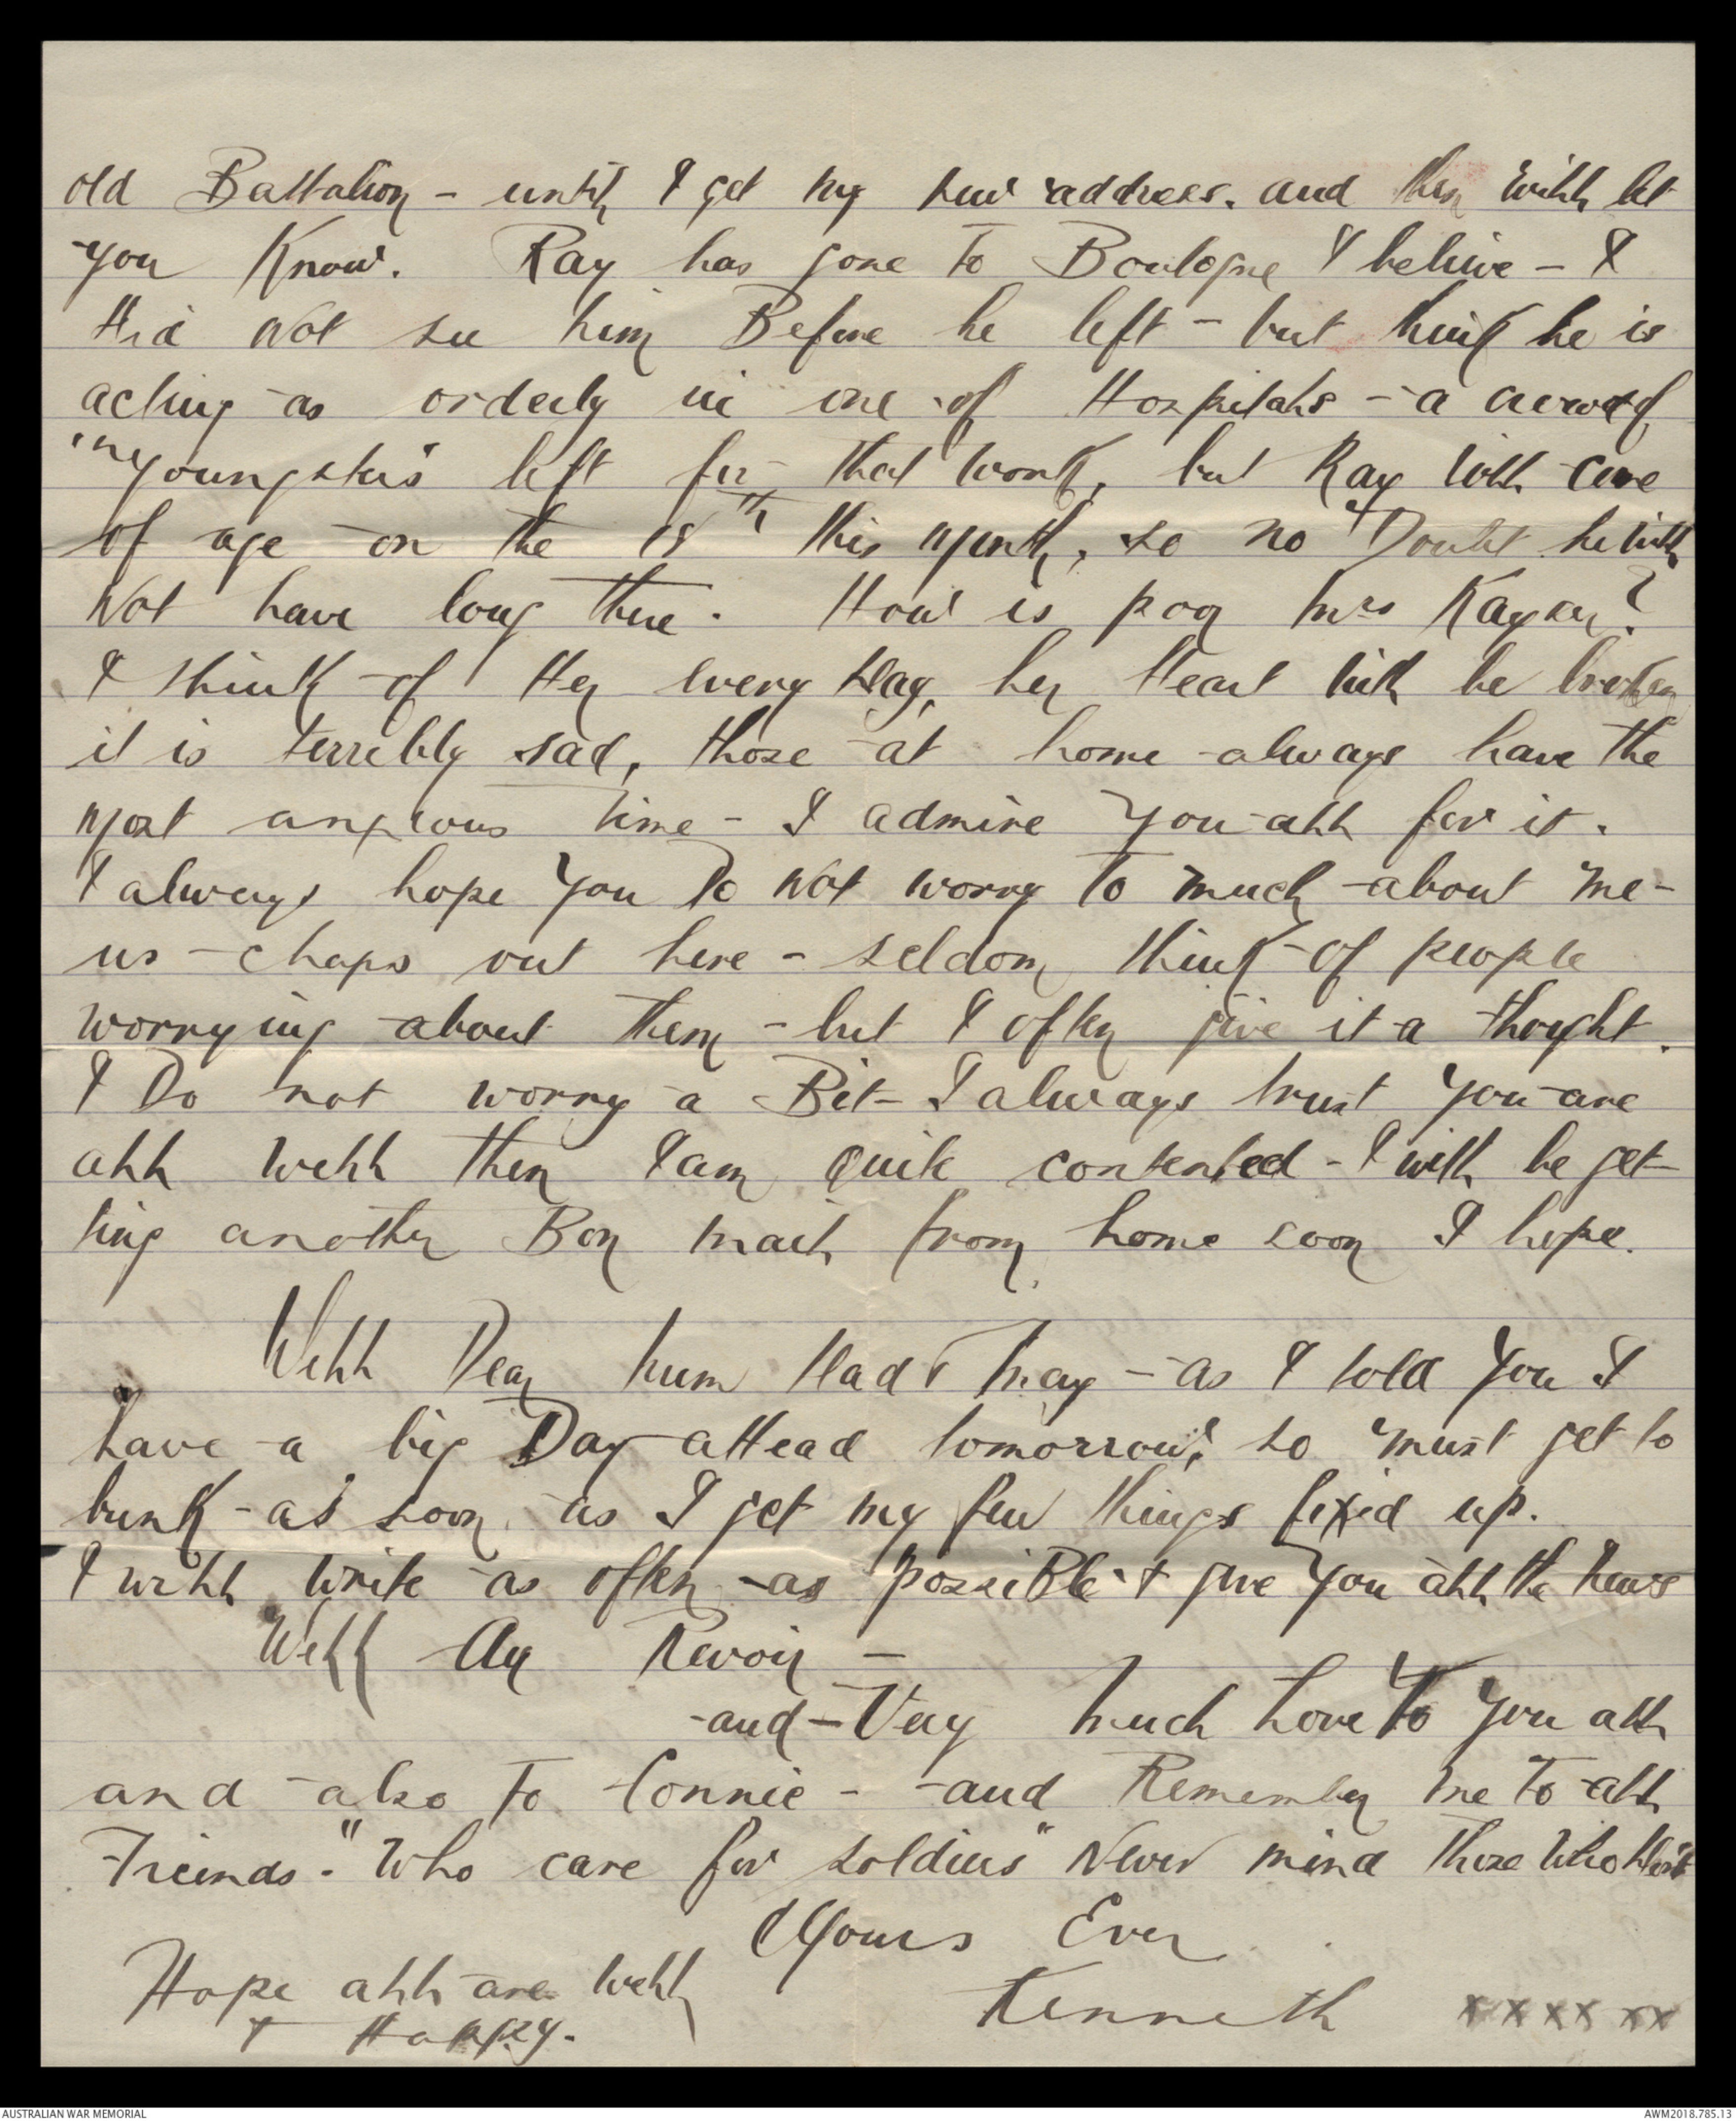 old Battalion - until I get my new address. and then will let
you Know. Ray has gone to Boulogne I believe - I
Did Not see him Before he left - but think he is
acting as orderly in one of Hospitals - a crowd of
"Youngsters" left for that work, but Ray will come
of age on the 18th this month, so no Doubt he will
Not have long there. How is poor Mrs Kayser?
I think of Her every Day, her Heart will be broken
it is terribly sad, those at home always have the
most anxious time - I admire You all for it.
I always hope You Do Not worry To much about me -
us chaps out here - seldom think of people
worrying about them - but I often give it a thought.
I Do not worry a Bit - I always trust You are
all Well then I am Quite contented - I will be get-
ting another Bon mail from home soon I hope.
Well Dear Mum Dad & May - as I told You I
have a big Day aHead tomorrow, so must get to
bunk - as soon as I get my few things fixed up.
I will write as often as possiBle & give You all the News
Well Au Revoir -
and - Very Much Love To You all
and also To Connie - and Remember me To all
Friends. "Who care for soldiers" Never mind Those Who Don't
Yours Ever
Hope all are Well
Kenneth xxxx xx
& Happy.
AUSTRALIAN WAR MEMORIAL
AWM2018.785.13